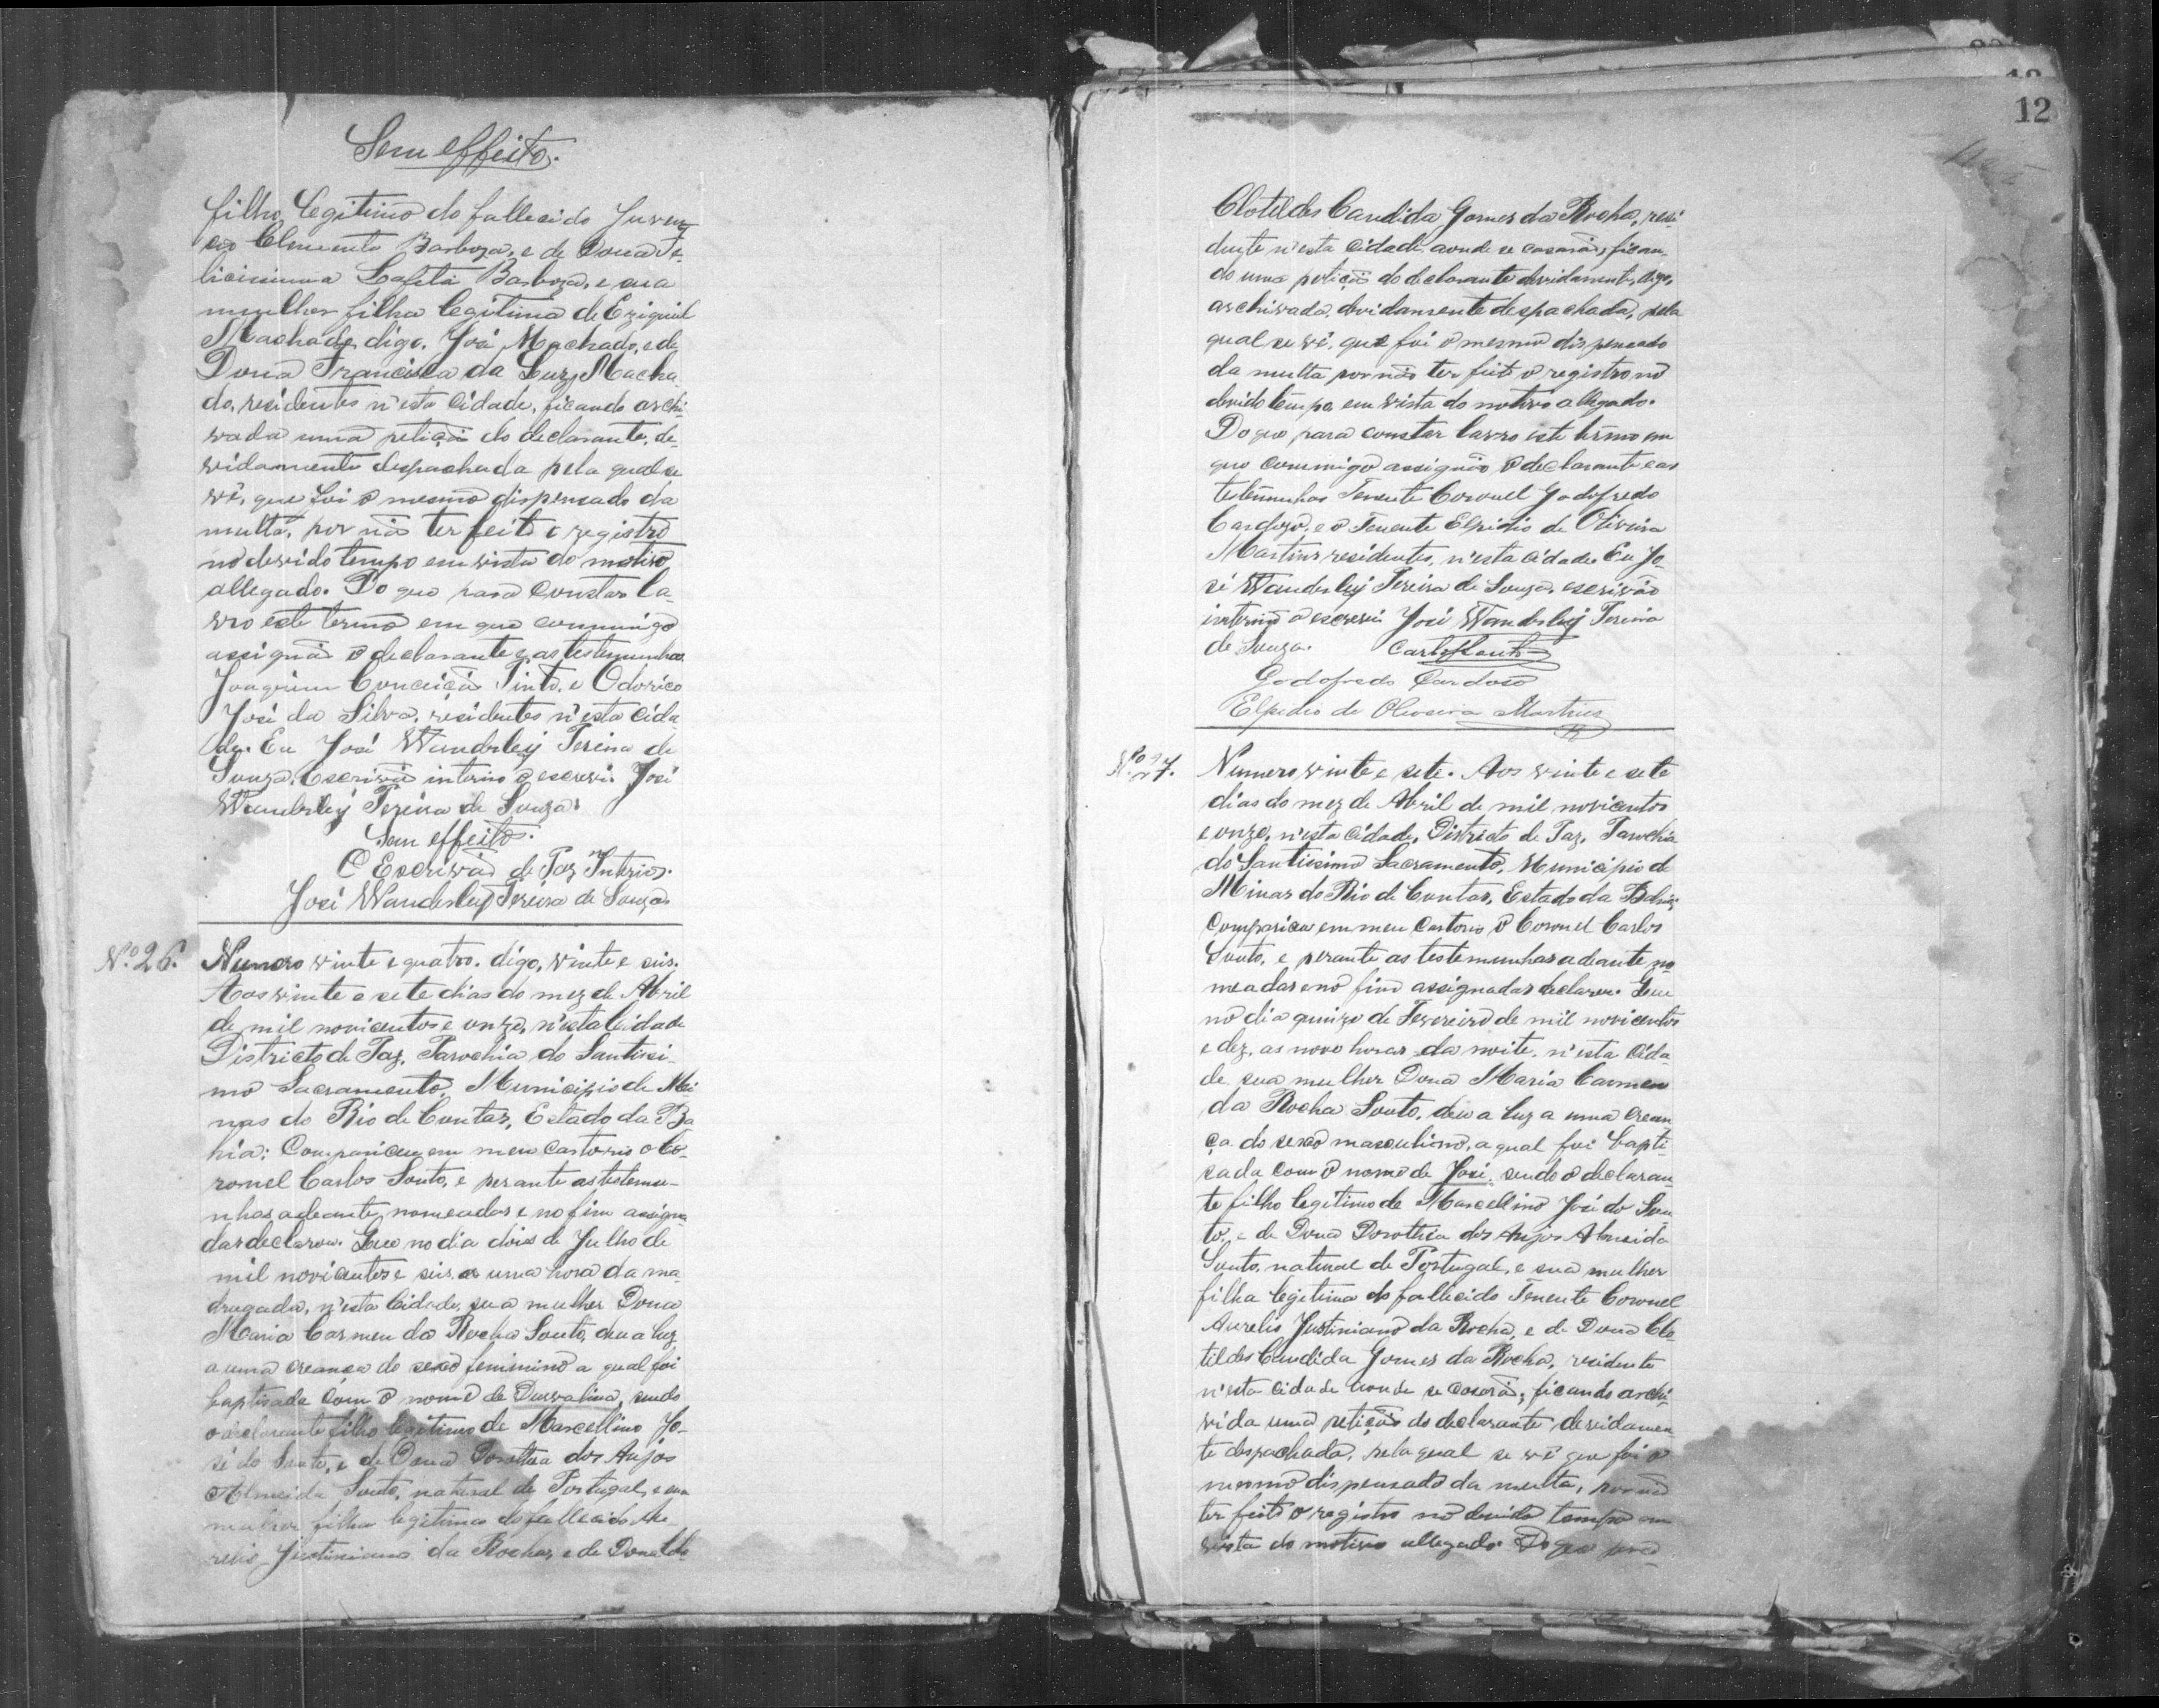 Sem effeito.
filho legitimo do fallecido Juven-
cio Clemente Barboza, e de Dona Fe-
licissima Lafetá Barboza, e sua
mulher filha legitima de Eziquiel
Machado, digo, José Machado, e de
Dona Francisca da Luz Macha-
do, residentes n'esta Cidade, ficando archi-
vada uma petição do declarante, de-
vidamente despachada pela qual se
vê, que foi o mesmo dispensado da
multa, por não ter feito o registro
no devido tempo em vista do motivo
allegado. Do que para constar la-
vro este termo em que commigo
assignão o declarante e as testemunhas
Joaquim Conceição Pinto, e Odorico
José da Silva, residentes n'esta Cida-
de. Eu José Wanderley Pereira de
Souza, Escrivão interino o escrevi. José
Wanderley Pereira de Souza.
Sem effeito.
O Escrivão de Paz Interino.
José Wanderley Pereira de Souza
Nº 26.
Numero vinte e quatro. digo, vinte e seis.
Aos vinte e sete dias do mez de Abril
de mil novicentos e onze, n'esta Cidade
Districto de Paz, Parochia do Santissi-
mo Sacramento, Municipio de Mi-
nas do Rio de Contas, Estado da Ba-
hia; Compareceu em meu Cartorio o Co-
ronel Carlos Souto, e perante as testemu-
nhas adeante nomeadas e no fim assigna-
das declarou. Que no dia dois de Julho de
mil novicentos e seis, a uma hora da ma-
drugada, n'esta Cidade, sua mulher Dona
Maria Carmen da Rocha Souto, deu a luz
a uma creança do sexo feminino a qual foi
baptisada com o nome de Durvalina, sendo
o declarante filho legitimo de Marcellino Jo-
sé do Souto, e de Dona Dorothea dos Anjos
Almeida Souto, natural de Portugal, e sua
mulher filha legitima do fallecido Au-
relio Justiniano da Rocha, e de Dona Clo
12
Clotildes Candida Gomes da Rocha, resi-
dente n'esta Cidade aonde se casarão, fican-
do uma petição do declarante devidamente, digo,
archivada, devidamente despachada, pela
qual se vê, que foi o mesmo dispensado
da multa por não ter feito o registro no
devido tempo em vista do motivo allegado.
Do que para constar lavro este termo em
que commigo assignão o declarante e as
testemunhas Tenente Coronel Godofredo
Cardozo, e o Tenente Elpidio de Oliveira
Martins residentes, n'esta Cidade. Eu Jo-
sé Wanderley Pereira de Souza, escrivão
interino o escrevi. José Wanderley Pereira
de Souza. Carlos Souto
Godofredo Cardoso
Elpidio de Oliveira Martins
Nº 27.
Numero vinte e sete. Aos vinte e sete
dias do mez de Abril de mil novicentos
e onze, n'esta Cidade, Districto de Paz, Parochia
do Santissimo Sacramento, Municipio de
Minas do Rio de Contas, Estado da Bahia;
Compareceu em meu Cartorio o Coronel Carlos
Souto, e perante as testemunhas adeante no-
meadas e no fim assignadas declarou. Que
no dia quinze de Fevereiro de mil novicentos
e dez, as nove horas da noite, n'esta Cida-
de sua mulher Dona Maria Carmen
da Rocha Souto, deu a luz a uma crean-
ça do sexo masculino, a qual foi bapti-
sada com o nome de José, sendo o declaran-
te filho legitimo de Marcellino José do Sou-
to, e de Dona Dorothea dos Anjos Almeida
Souto, natural de Portugal, e sua mulher
filha legitima do fallecido Tenente Coronel
Aurelio Justiniano da Rocha, e de Dona Clo-
tildes Candida Gomes da Rocha, residente
n'esta Cidade aonde se casarão, ficando archi-
vida uma petição do declarante devidamen-
te despachada, pela qual se vê que foi o
mesmo dispensado da multa, por não
ter feito o registro no devido tempo em
vista do motivo allegado. Do que para